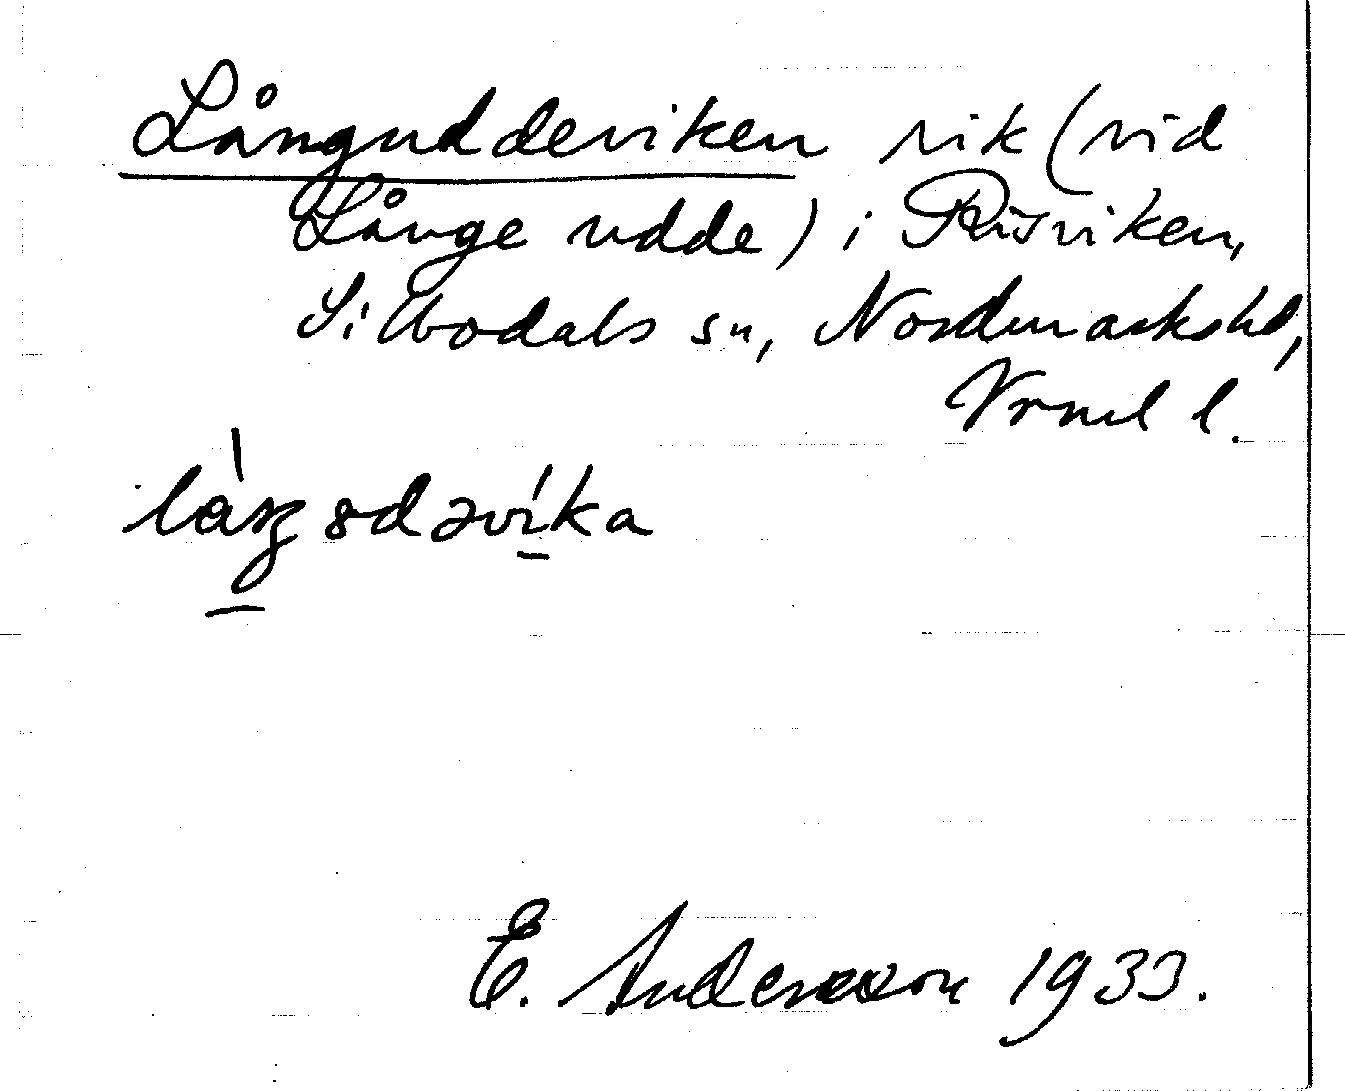 Långuddeviken vik (vid
Långe udde) i Räsviken,
Silbodals sn, Nordmarkshd,
Vrml l.
E. Andersson 1933.